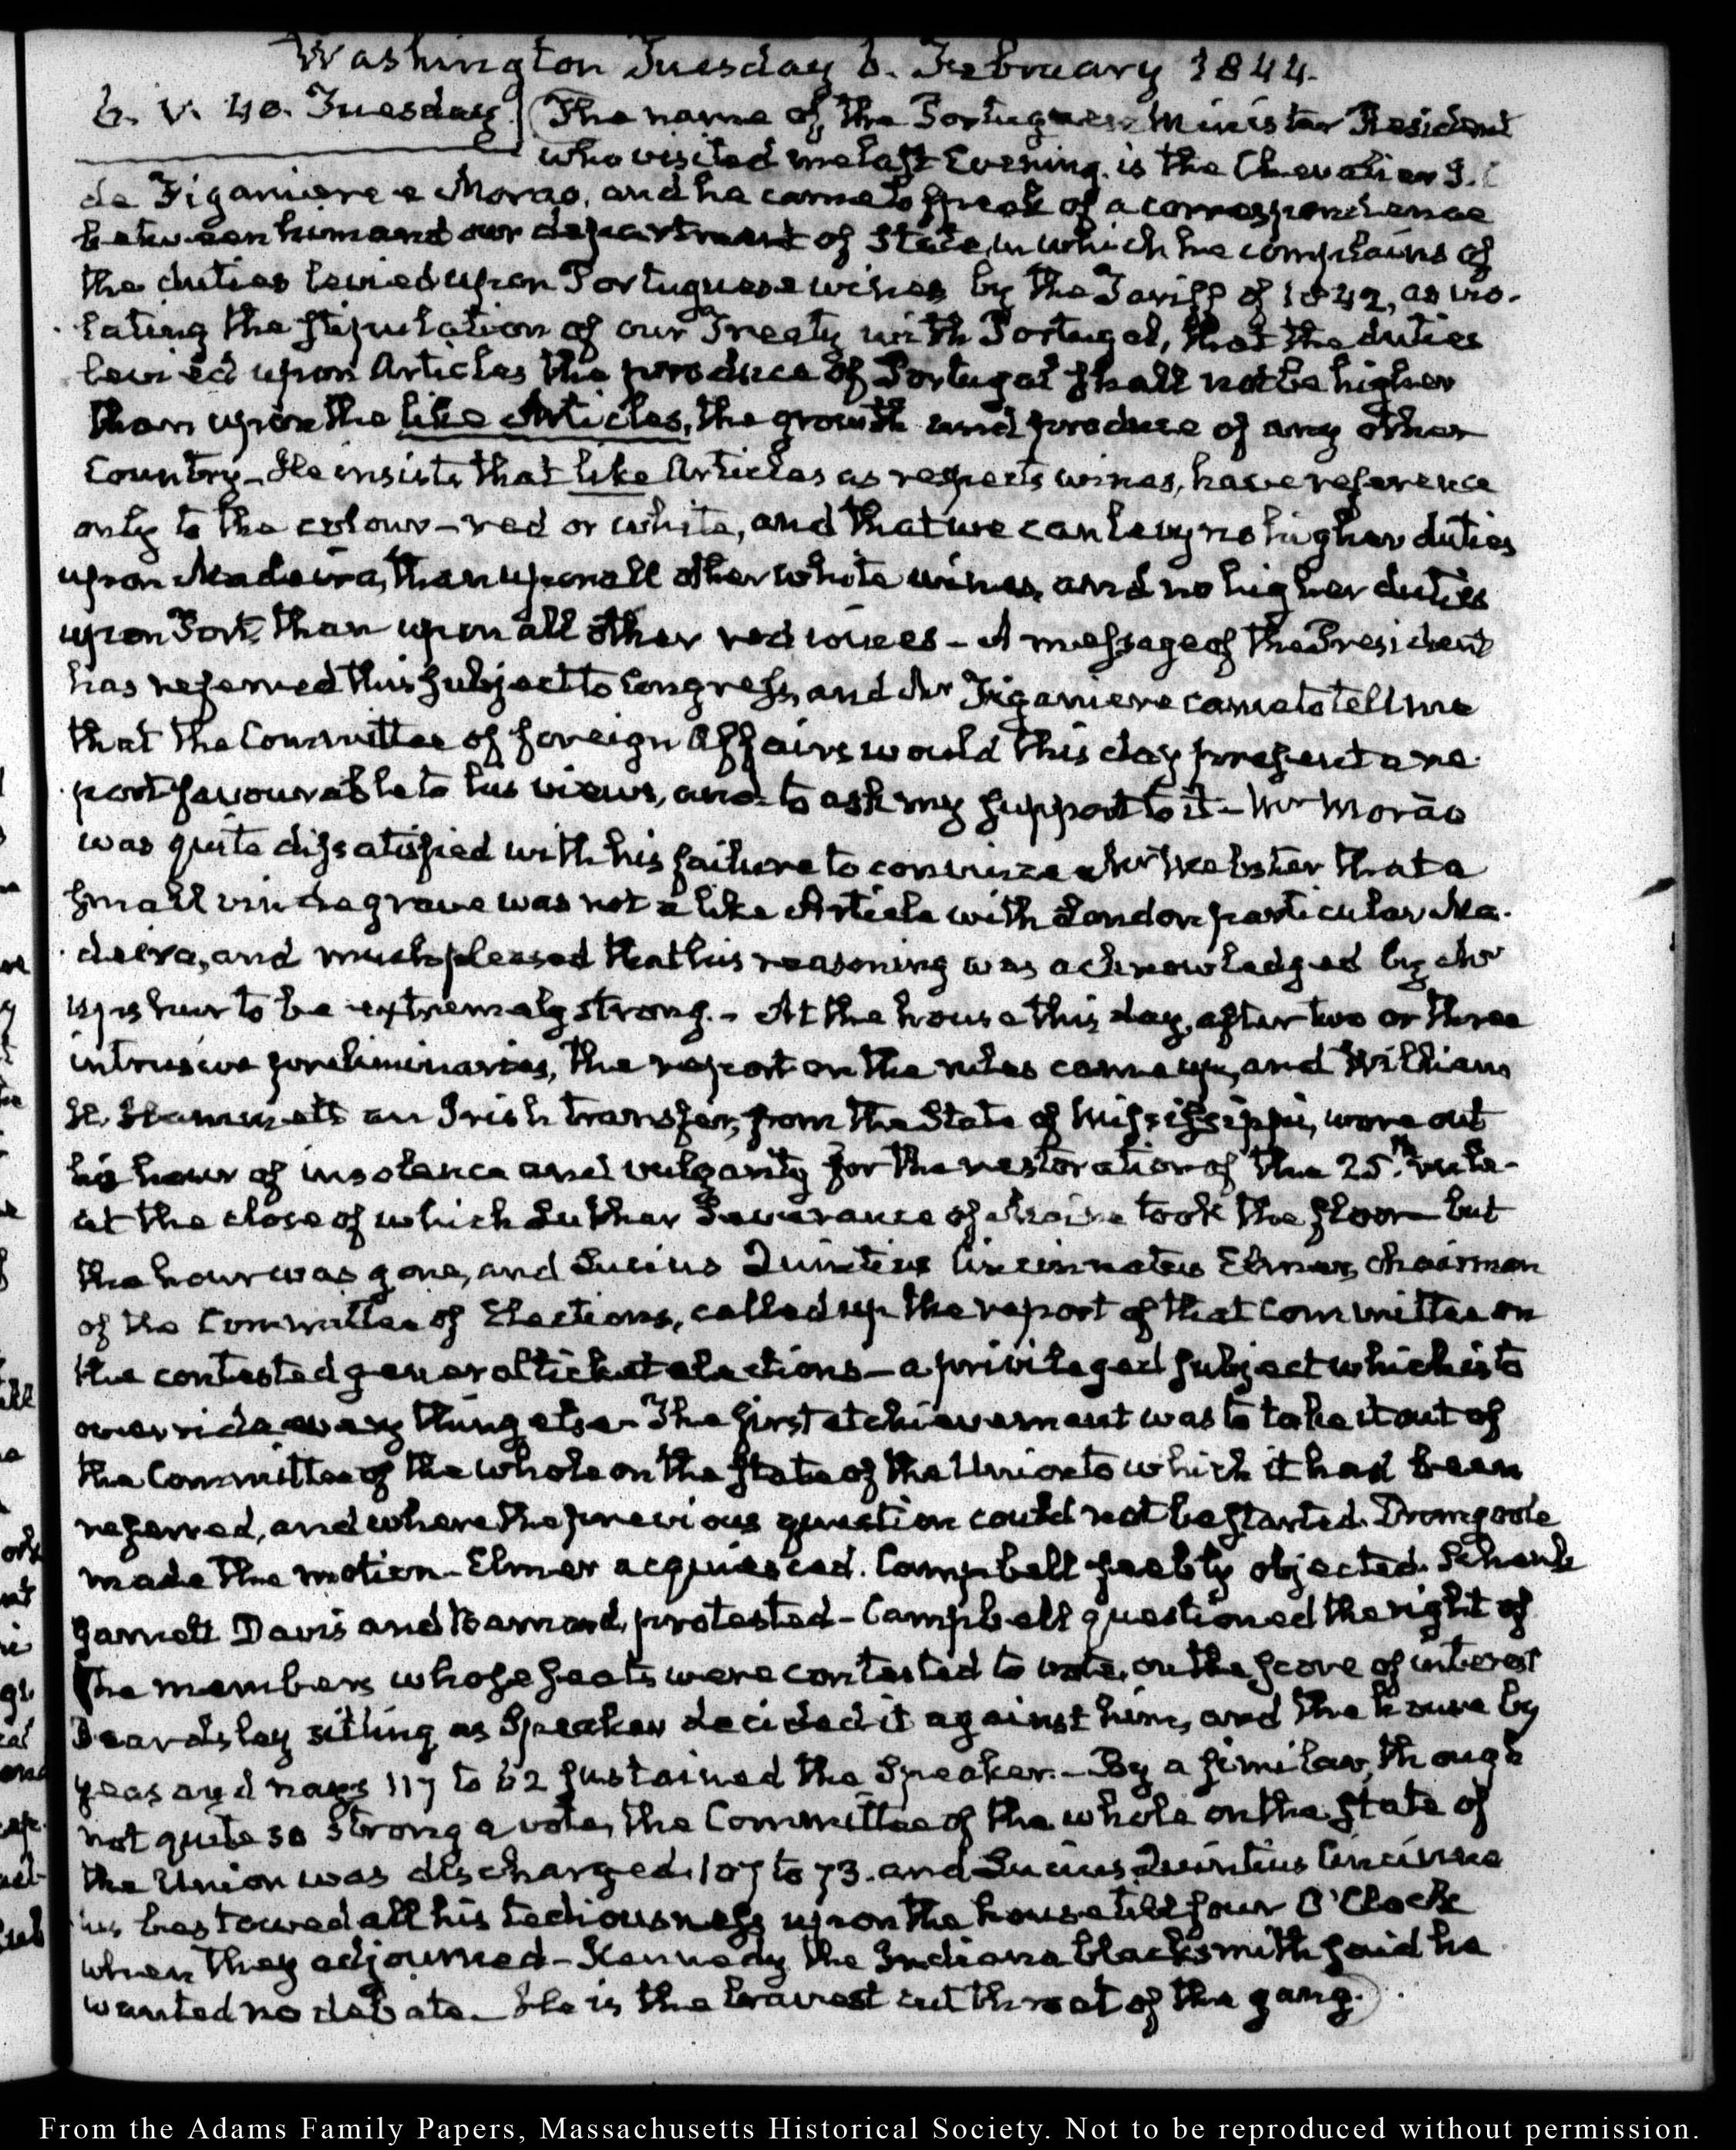 Washington Tuesday 6. February 1844.
6. V. 40. Tuesday. The name of the Portuguese Minister Resident
who visited me last Evening, is the Chevalier J. C
de Figaniere e Morao, and he came to speak of a correspondence
between him and our department of State, in which he complains of
the duties levied upon Portuguese wines by the Tariff of 1842, as vio-
lating the stipulation of our Treaty with Portugal, that the duties
levied upon Articles the produce of Portugal shall not be higher
than upon the like Articles, the growth and produce of any other
Country - He insists that like Articles as respects wines, have reference
only to the colour - red or white, and that we can levy no higher duties
upon Madeira, than upon all other white wines, and no higher duties
upon Port, than upon all other red wines - A message of the President
has referred this subject to Congress, and Mr Figaniere came to tell me
that the Committee of foreign Affairs would this day present a re-
port favourable to his views, and to ask my support to it - Mr Morão
was quite dissatisfied with his failure to convince Mr Webster that a
small vin de grave was not a like Article with London particular Ma-
deira, and much pleased that his reasoning was acknowledged by Mr
Upshur to be extremely strong. - At the house this day, after two or three
intrusive preliminaries, the report on the rules came up, and William
H. Hammett an Irish transfer, from the State of Mississippi, wore out
his hour of insolence and vulgarity for the restoration of the 25th rule -
at the close of which Luther Severance of Maine took the floor - but
the hour was gone, and Lucius Quintius Cincinnatus Elmer, chairman
of the Committee of Elections, called up the report of that Committee on
the contested general ticket elections - a privileged subject which is to
override every thing else - The first atchievement was to take it out of
the Committee of the whole on the state of the Union to which it had been
referred, and where the previous question could not be started. Dromgoole
made the motion - Elmer acquiesced. Campbell feebly objected. Schenk
Garrett Davis and Barnard, protested - Campbell questioned the right of
the members whose seats were contested to vote, on the score of interest
Beardsley sitting as Speaker decided it against him, and the house by
yeas and nays 117 to 62 sustained the Speaker. - By a similar, though
not quite so strong a vote, the Committee of the whole on the state of
the Union was discharged. 107 to 73. and Lucius Quintius Cincinna
tus bestowed all his tediousness upon the house till four O'Clock
when they adjourned - Kennedy the Indiana blacksmith said he
wanted no debate - He is the bravest cut throat of the gang.
From the Adams Family Papers, Massachusetts Historical Society. Not to be reproduced without permission.